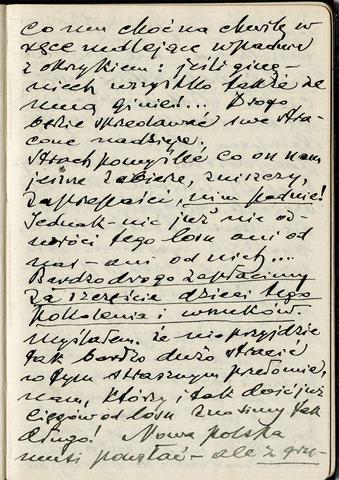 Co mu choć na chwilę w
ręce mdlejące wpadnie
z okrzykiem: jeśli ginę –
niech wszystko także ze
mną ginie!... Drogo
będzie sprzedawać swe stra-
cone nadzieje.
Strach pomyśleć co on nam
jeszcze zabierze, zniszczy,
zaprzepaści, nim padnie!
Jednak – nic już nie od-
wróci tego losu ani od
nas – ani od nich...
Bardzo drogo zapłacimy
za szczęście dzieci tego
pokolenia i wnuków.
Myślałem, że nie przyjdzie
tak bardzo dużo stracić
w tym strasznym przełomie,
nam, którzy i tak dość już
cięgów od losu znosimy tak
długo! Nowa Polska
musi powstać – ale z gru-